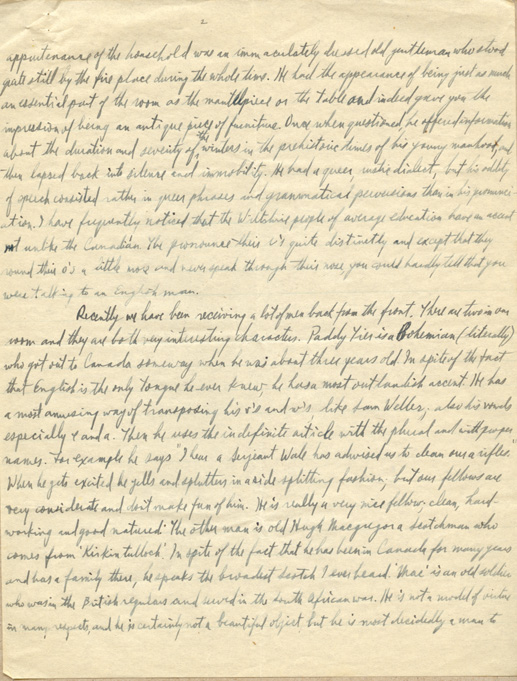 2
appurtenance of the household was an immaculately dressed old gentleman who stood
quite still by the fire place during the whole time. He had the appearance of being just as much
an essential part of the room as the mantlepiece or the table and indeed gave you the
impression of being an antique piece of furniture. Once when questioned, he offered information
about the duration and severity of the winters in the prehistoric times of his young manhood, and
then lapsed back into silence and immobility. He had a queer rustic dialect, but his oddity
of speech consisted rather in queer phrases and grammatical perversions than in his pronunci-
ation. I have frequently noticed that the Wiltshire people of average education have an accent
not unlike the Canadian. They pronounce their r's quite distinctly and except that they
round their o's a little more and never speak through their nose you could hardly tell that you
were talking to an English man.
Recently we have been receiving a lot of men back from the front. There are two in our
room and they are both very interesting characters. Paddy is a Bohemian (literally)
who got out to Canada someway when he was about three years old. In spite of the fact
that English is the only tongue he ever knew, he has a most outlandish accent. He has
a most amusing way of transposing his v's and w's, like Sam Weller, also his vowels
especially e and a. Then he uses the indefinite article with the plural and with proper
names. For example he says "I hear a Serjeant Wale has advised us to clean our a rifles."
When he gets excited he yells and splutters in a side splitting fashion, but our fellows are
very considerate and don't make fun of him. He is really a very nice fellow, clean, hard-
working and good natured. The other man is old Hugh Macgregor a Scotchman who
comes from 'Kirkintulloch'. In spite of the fact that he has been in Canada for many years
and has a family there, he speaks the broadest Scotch I ever heard. 'Mac' is an old soldier
who was in the British regulars and served in the South African war. He is not a model of virtue
in many respects, and he is certainly not a beautiful object but he is most decidedly a man to